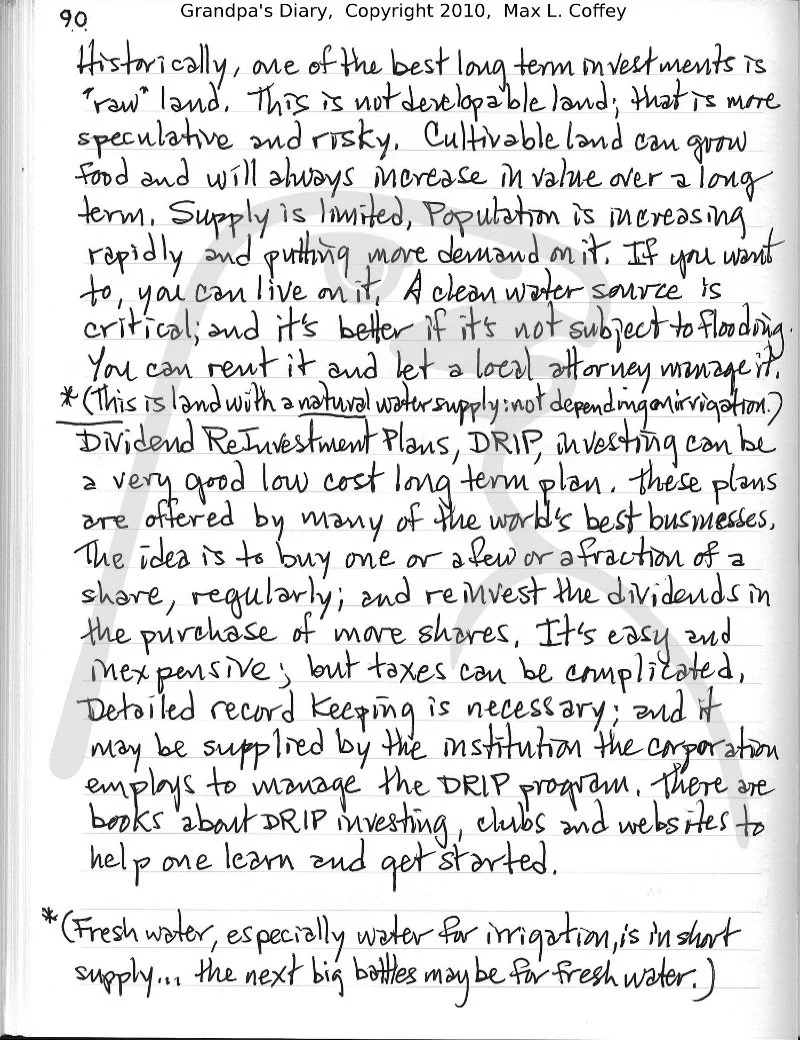 90
Grandpa's Diary, Copyright 2010, Max L. Coffey
Historically, one of the best long term investments is
"raw" land. This is not developable land; that is more
speculative and risky. Cultivable land can grow
food and will always increase in value over a long
term. Supply is limited. Population is increasing
rapidly and putting more demand on it. If you want
to, you can live on it. A clean water source is
critical; and it's better if it's not subject to flooding.
You can rent it and let a local attorney manage it.
*(This is land with a natural water supply: not depending on irrigation.)
Dividend ReInvestment Plans, DRIP, investing can be
a very good low cost long term plan. These plans
are offered by many of the world's best businesses.
The idea is to buy one or a few or a fraction of a
share, regularly; and reinvest the dividends in
the purchase of more shares. It's easy and
inexpensive; but taxes can be complicated.
Detailed record keeping is necessary; and it
may be supplied by the institution the corporation
employs to manage the DRIP program. There are
books about DRIP investing, clubs and websites to
help one learn and get started.
*(Fresh water, especially water for irrigation, is in short
supply... the next big battles may be for fresh water.)